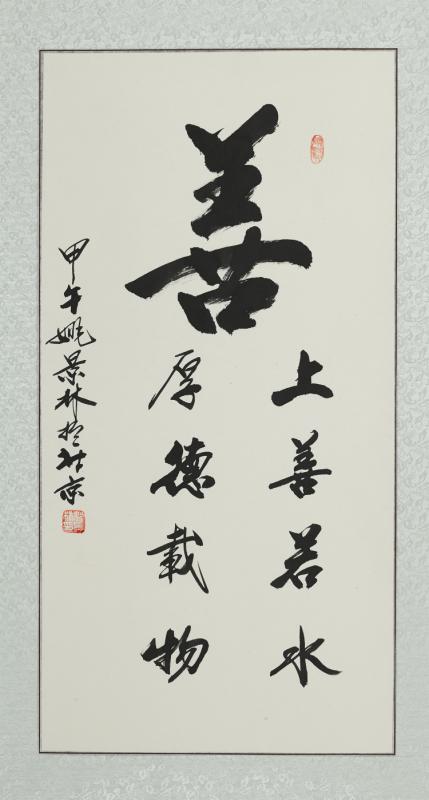 善
上善若水
厚德載物
甲午姚景林於北京